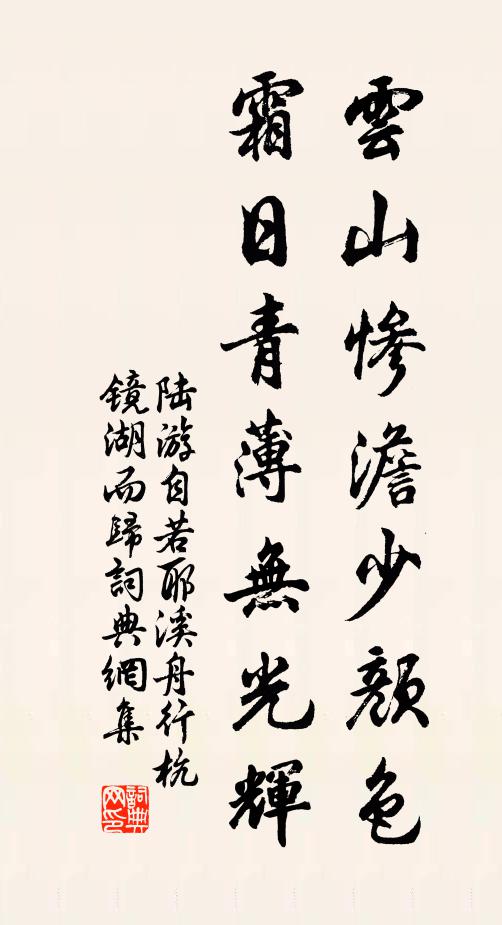 雲山慘澹少顏色
霜日青薄無光輝
陆游自若耶溪舟行杭
鏡湖而歸詞典網集
詞典
网印